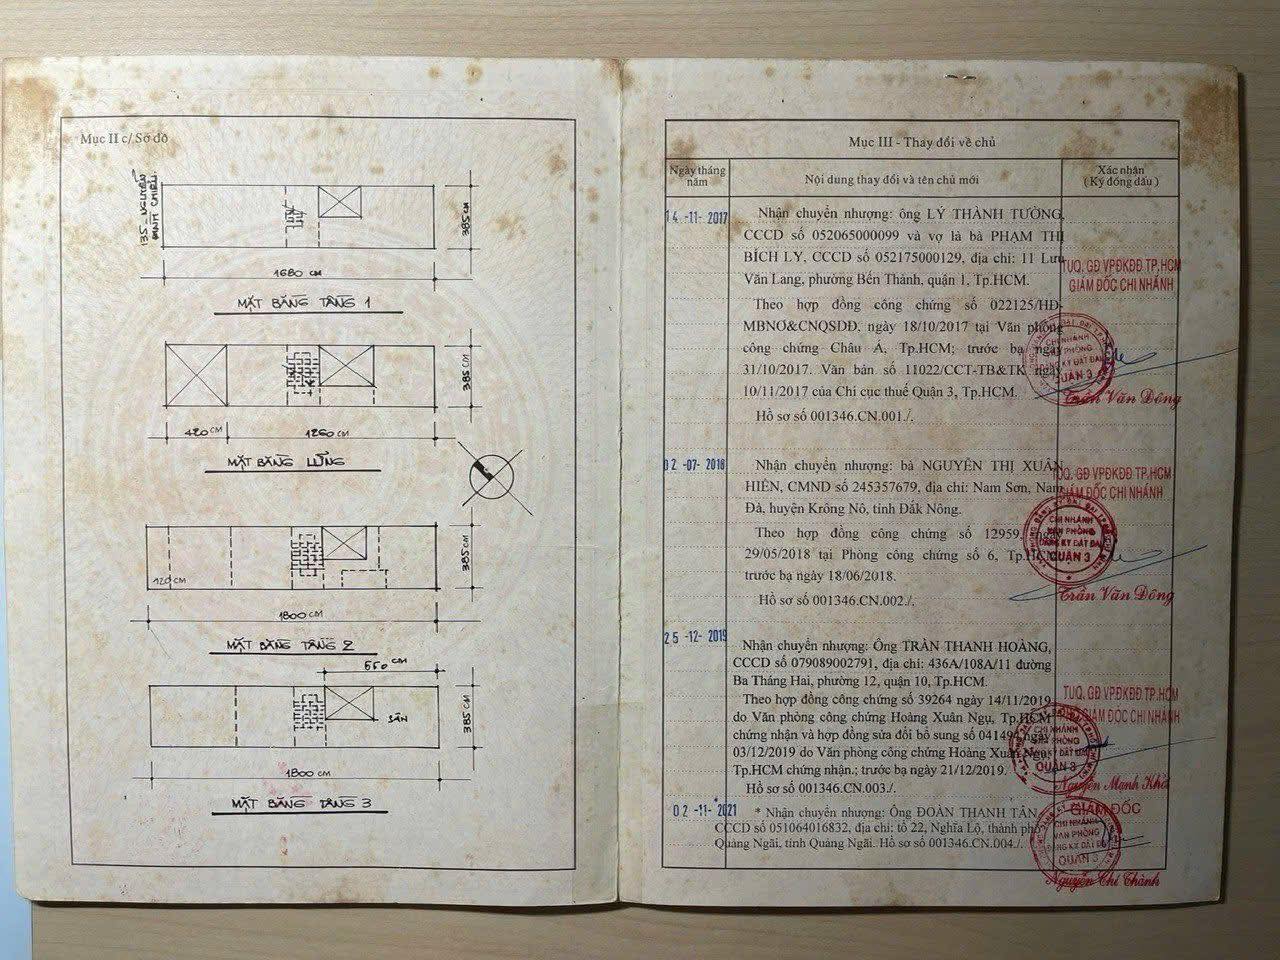 Mục II c/ Sơ đồ
135 - NGUYỄN
ĐÌNH CHIỂU
385 CM
1680 CM
MẶT BẰNG TẦNG 1
385 CM
420 CM
1260 CM
MẶT BẰNG LỬNG
385 CM
120 CM
1800 CM
MẶT BẰNG TẦNG 2
550 CM
SÂN
385 CM
1800 CM
MẶT BẰNG TẦNG 3
Mục III - Thay đổi về chủ
Ngày tháng năm
Nội dung thay đổi và tên chủ mới
Xác nhận
( Ký đóng dấu )
14 -11- 2017
Nhận chuyển nhượng: ông LÝ THÀNH TƯỜNG,
CCCD số 052065000099 và vợ là bà PHẠM THỊ
BÍCH LY, CCCD số 052175000129, địa chỉ: 11 Lưu
Văn Lang, phường Bến Thành, quận 1, Tp.HCM.
Theo hợp đồng công chứng số 022125/HĐ-
MBNƠ&CNQSDĐ, ngày 18/10/2017 tại Văn phòng
công chứng Châu Á, Tp.HCM; trước bạ ngày
31/10/2017. Văn bản số 11022/CCT-TB&TK ngày
10/11/2017 của Chi cục thuế Quận 3, Tp.HCM.
Hồ sơ số 001346.CN.001./.
TUQ. GĐ VPĐKĐĐ TP.HCM
GIÁM ĐỐC CHI NHÁNH
CHI NHÁNH
VĂN PHÒNG
ĐĂNG KÝ ĐẤT ĐAI
QUẬN 3
Trần Văn Đông
02 -07- 2018
Nhận chuyển nhượng: bà NGUYỄN THỊ XUÂN
HIÊN, CMND số 245357679, địa chỉ: Nam Sơn, Nam
Đà, huyện Krông Nô, tỉnh Đắk Nông.
Theo hợp đồng công chứng số 12959, ngày
29/05/2018 tại Phòng công chứng số 6, Tp.HCM;
trước bạ ngày 18/06/2018.
Hồ sơ số 001346.CN.002./.
TUQ. GĐ VPĐKĐĐ TP.HCM
GIÁM ĐỐC CHI NHÁNH
CHI NHÁNH
VĂN PHÒNG
ĐĂNG KÝ ĐẤT ĐAI
QUẬN 3
Trần Văn Đông
25 -12- 2019
Nhận chuyển nhượng: Ông TRẦN THANH HOÀNG,
CCCD số 079089002791, địa chỉ: 436A/108A/11 đường
Ba Tháng Hai, phường 12, quận 10, Tp.HCM.
Theo hợp đồng công chứng số 39264 ngày 14/11/2019
do Văn phòng công chứng Hoàng Xuân Ngụ, Tp.HCM
chứng nhận và hợp đồng sửa đổi bổ sung số 041494 ngày
03/12/2019 do Văn phòng công chứng Hoàng Xuân Ngụ,
Tp.HCM chứng nhận.; trước bạ ngày 21/12/2019.
Hồ sơ số 001346.CN.003./.
TUQ. GĐ VPĐKĐĐ TP.HCM
GIÁM ĐỐC CHI NHÁNH
CHI NHÁNH
VĂN PHÒNG
ĐĂNG KÝ ĐẤT ĐAI
QUẬN 3
Nguyễn Mạnh Khá
02 -11- 2021
* Nhận chuyển nhượng: Ông ĐOÀN THANH TÂN
CCCD số 051064016832, địa chỉ: tổ 22, Nghĩa Lộ, thành phố
Quảng Ngãi, tỉnh Quảng Ngãi. Hồ sơ số 001346.CN.004./.
GIÁM ĐỐC
CHI NHÁNH
VĂN PHÒNG
ĐĂNG KÝ ĐẤT ĐAI
QUẬN 3
Nguyễn Chí Thành